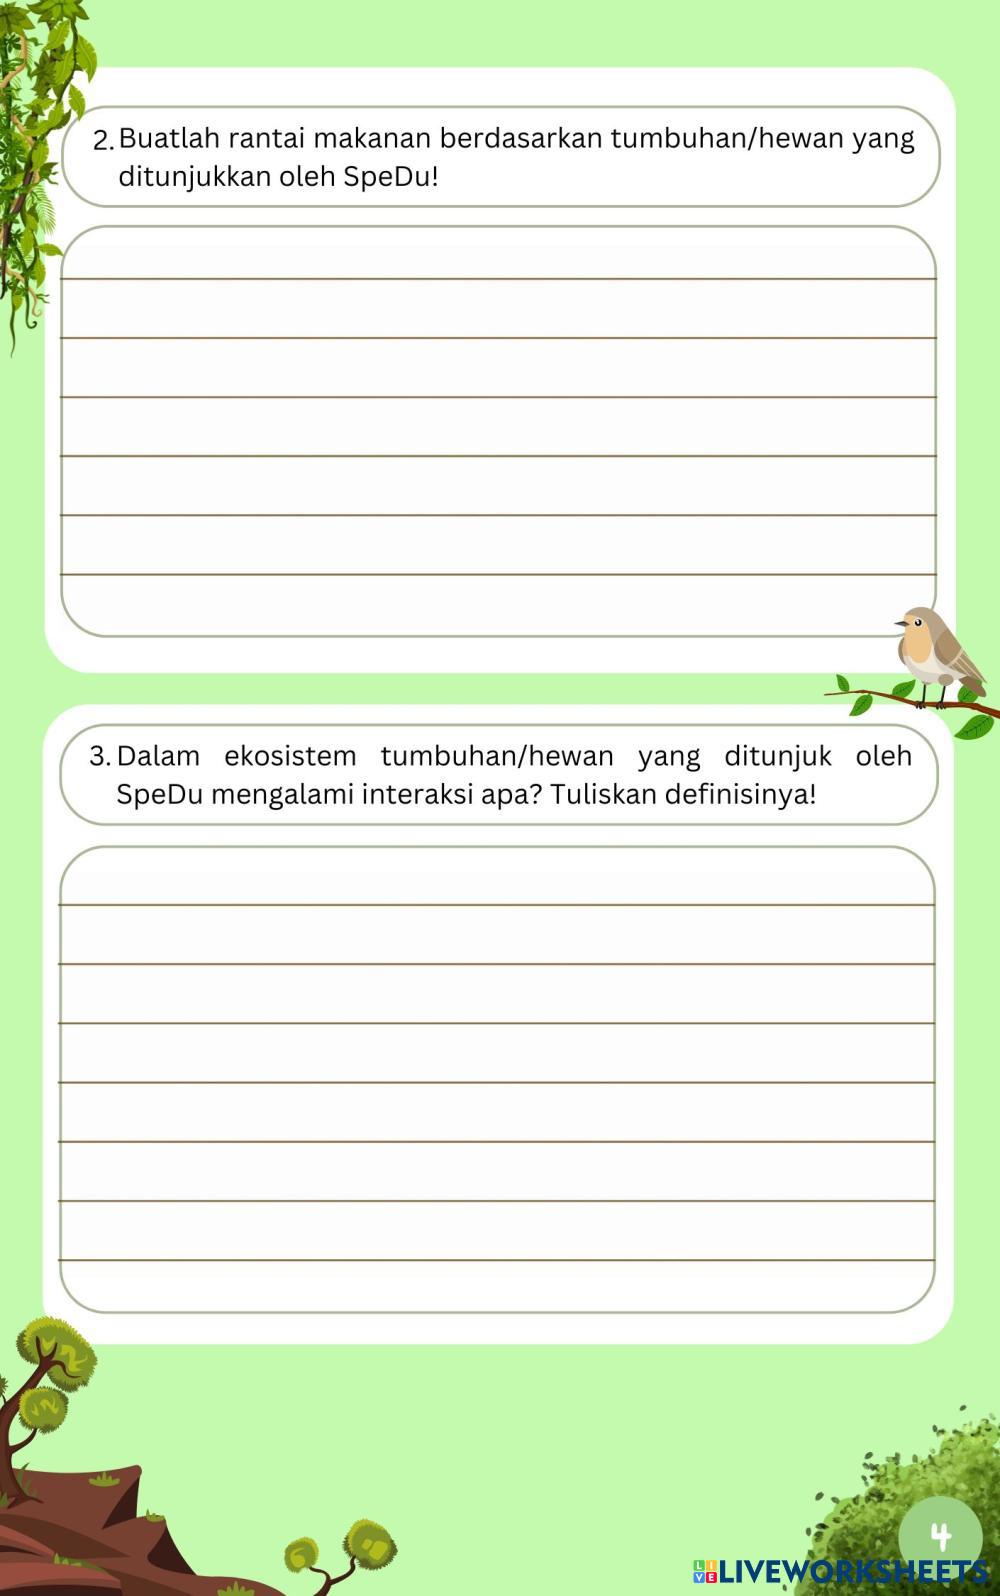 2. Buatlah rantai makanan berdasarkan tumbuhan/hewan yang
ditunjukkan oleh SpeDu!
3. Dalam ekosistem tumbuhan/hewan yang ditunjuk oleh
SpeDu mengalami interaksi apa? Tuliskan definisinya!
4
LIVE LIVEWORKSHEETS